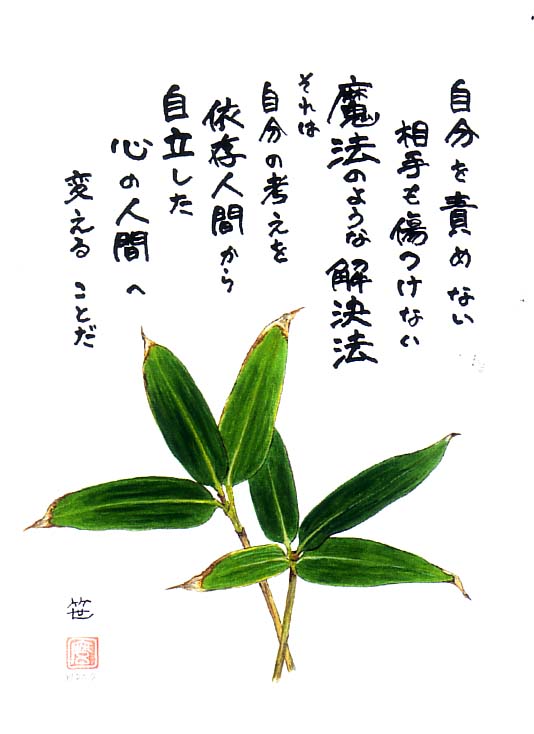 自分を責めない
相手も傷つけない
魔法のような解決法
それは
自分の考えを
依存人間から
自立した
心の人間へ
変えることだ
笹